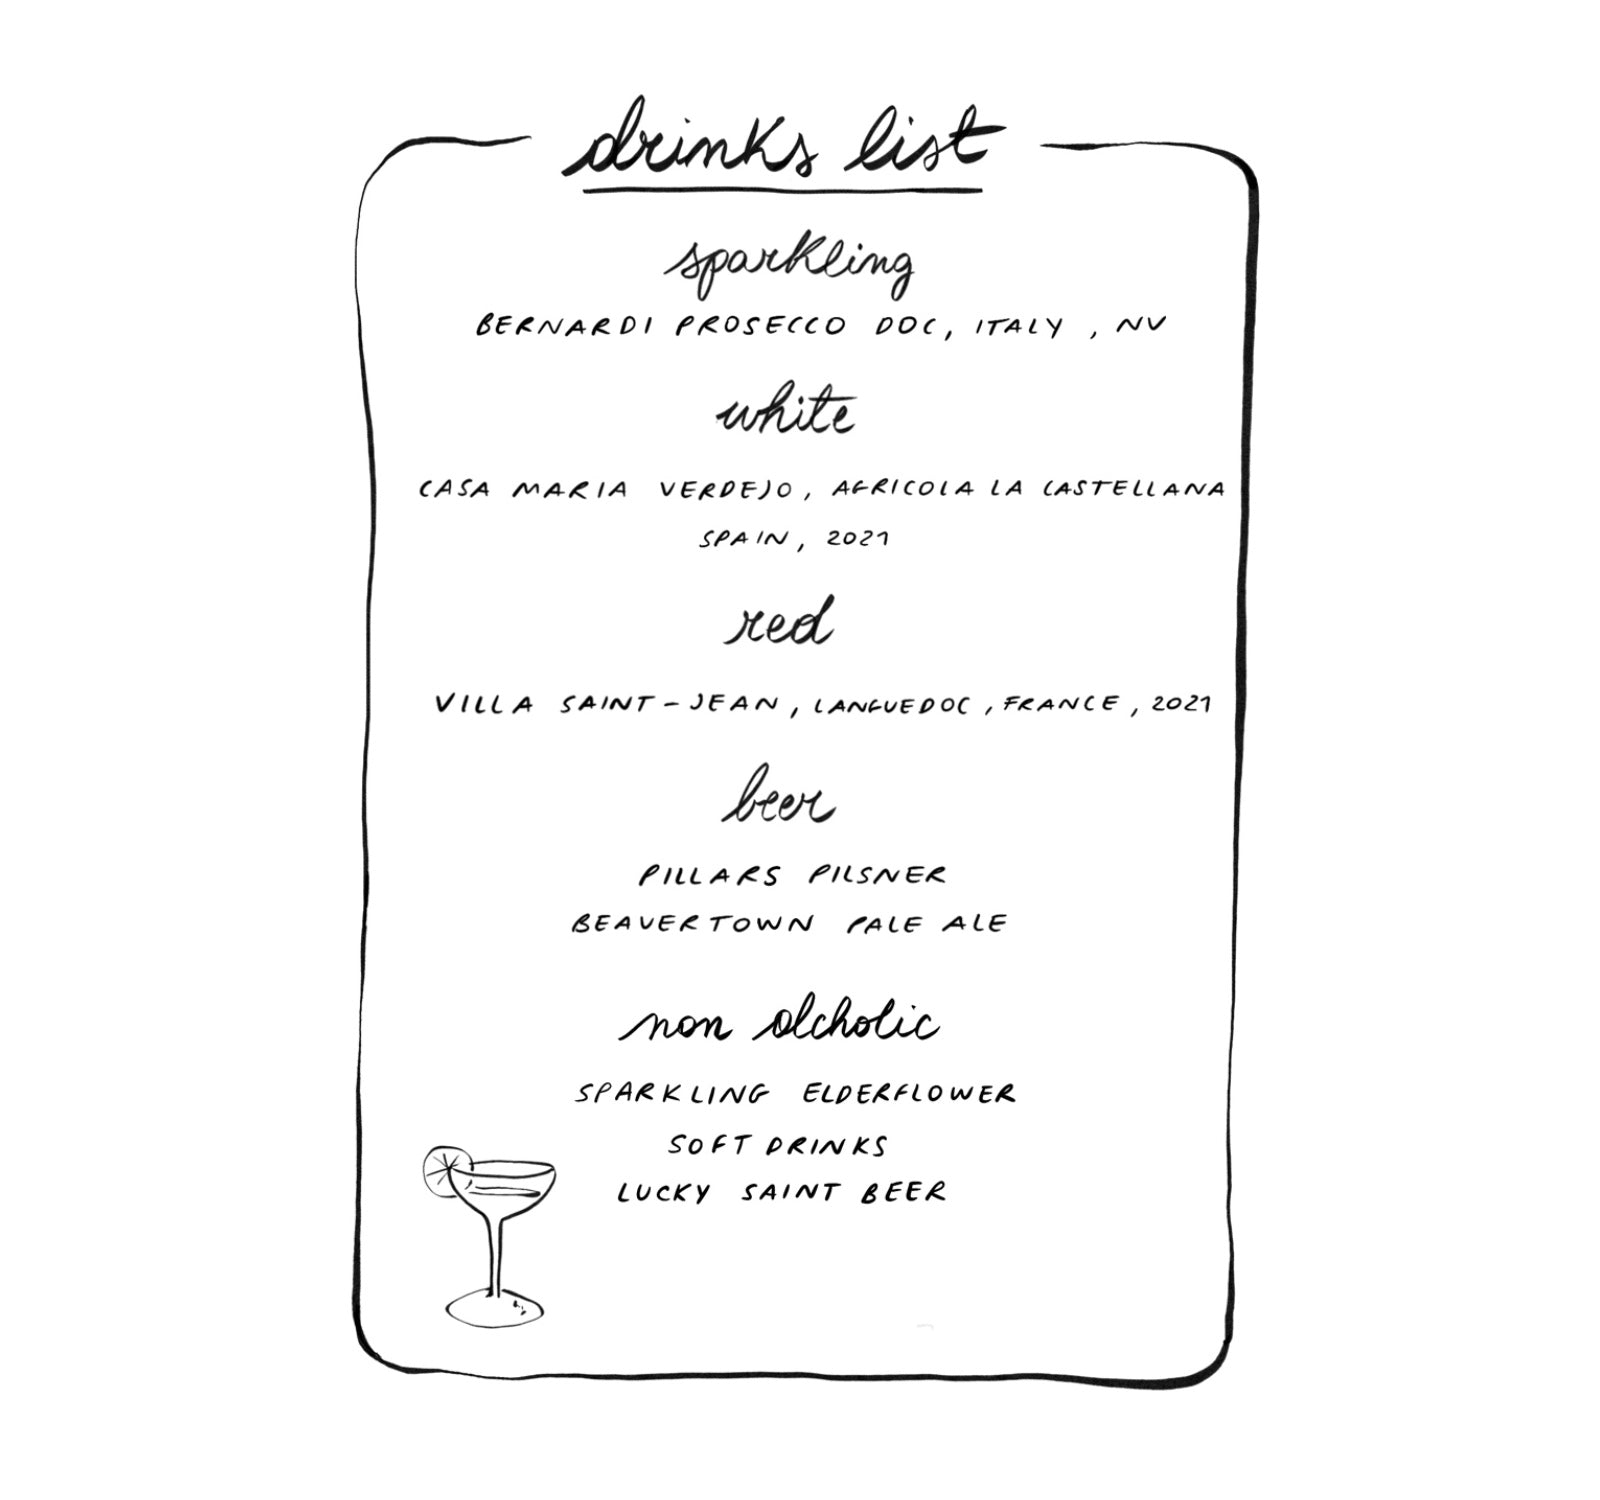 drinks list
sparkling
BERNARDI PROSECCO DOC, ITALY , NV
white
CASA MARIA VERDEJO, AGRICOLA LA CASTELLANA
SPAIN, 2021
red
VILLA SAINT-JEAN, LANGUEDOC, FRANCE, 2021
beer
PILLARS PILSNER
BEAVERTOWN PALE ALE
non alcholic
SPARKLING ELDERFLOWER
SOFT DRINKS
LUCKY SAINT BEER